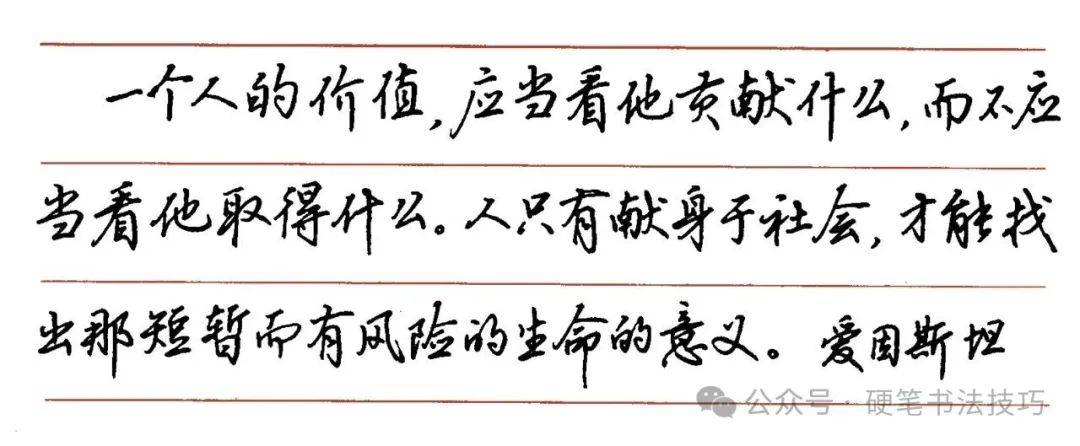 一个人的价值,应当看他贡献什么,而不应
当看他取得什么。人只有献身于社会,才能找
出那短暂而有风险的生命的意义。爱因斯坦
公众号·硬笔书法技巧